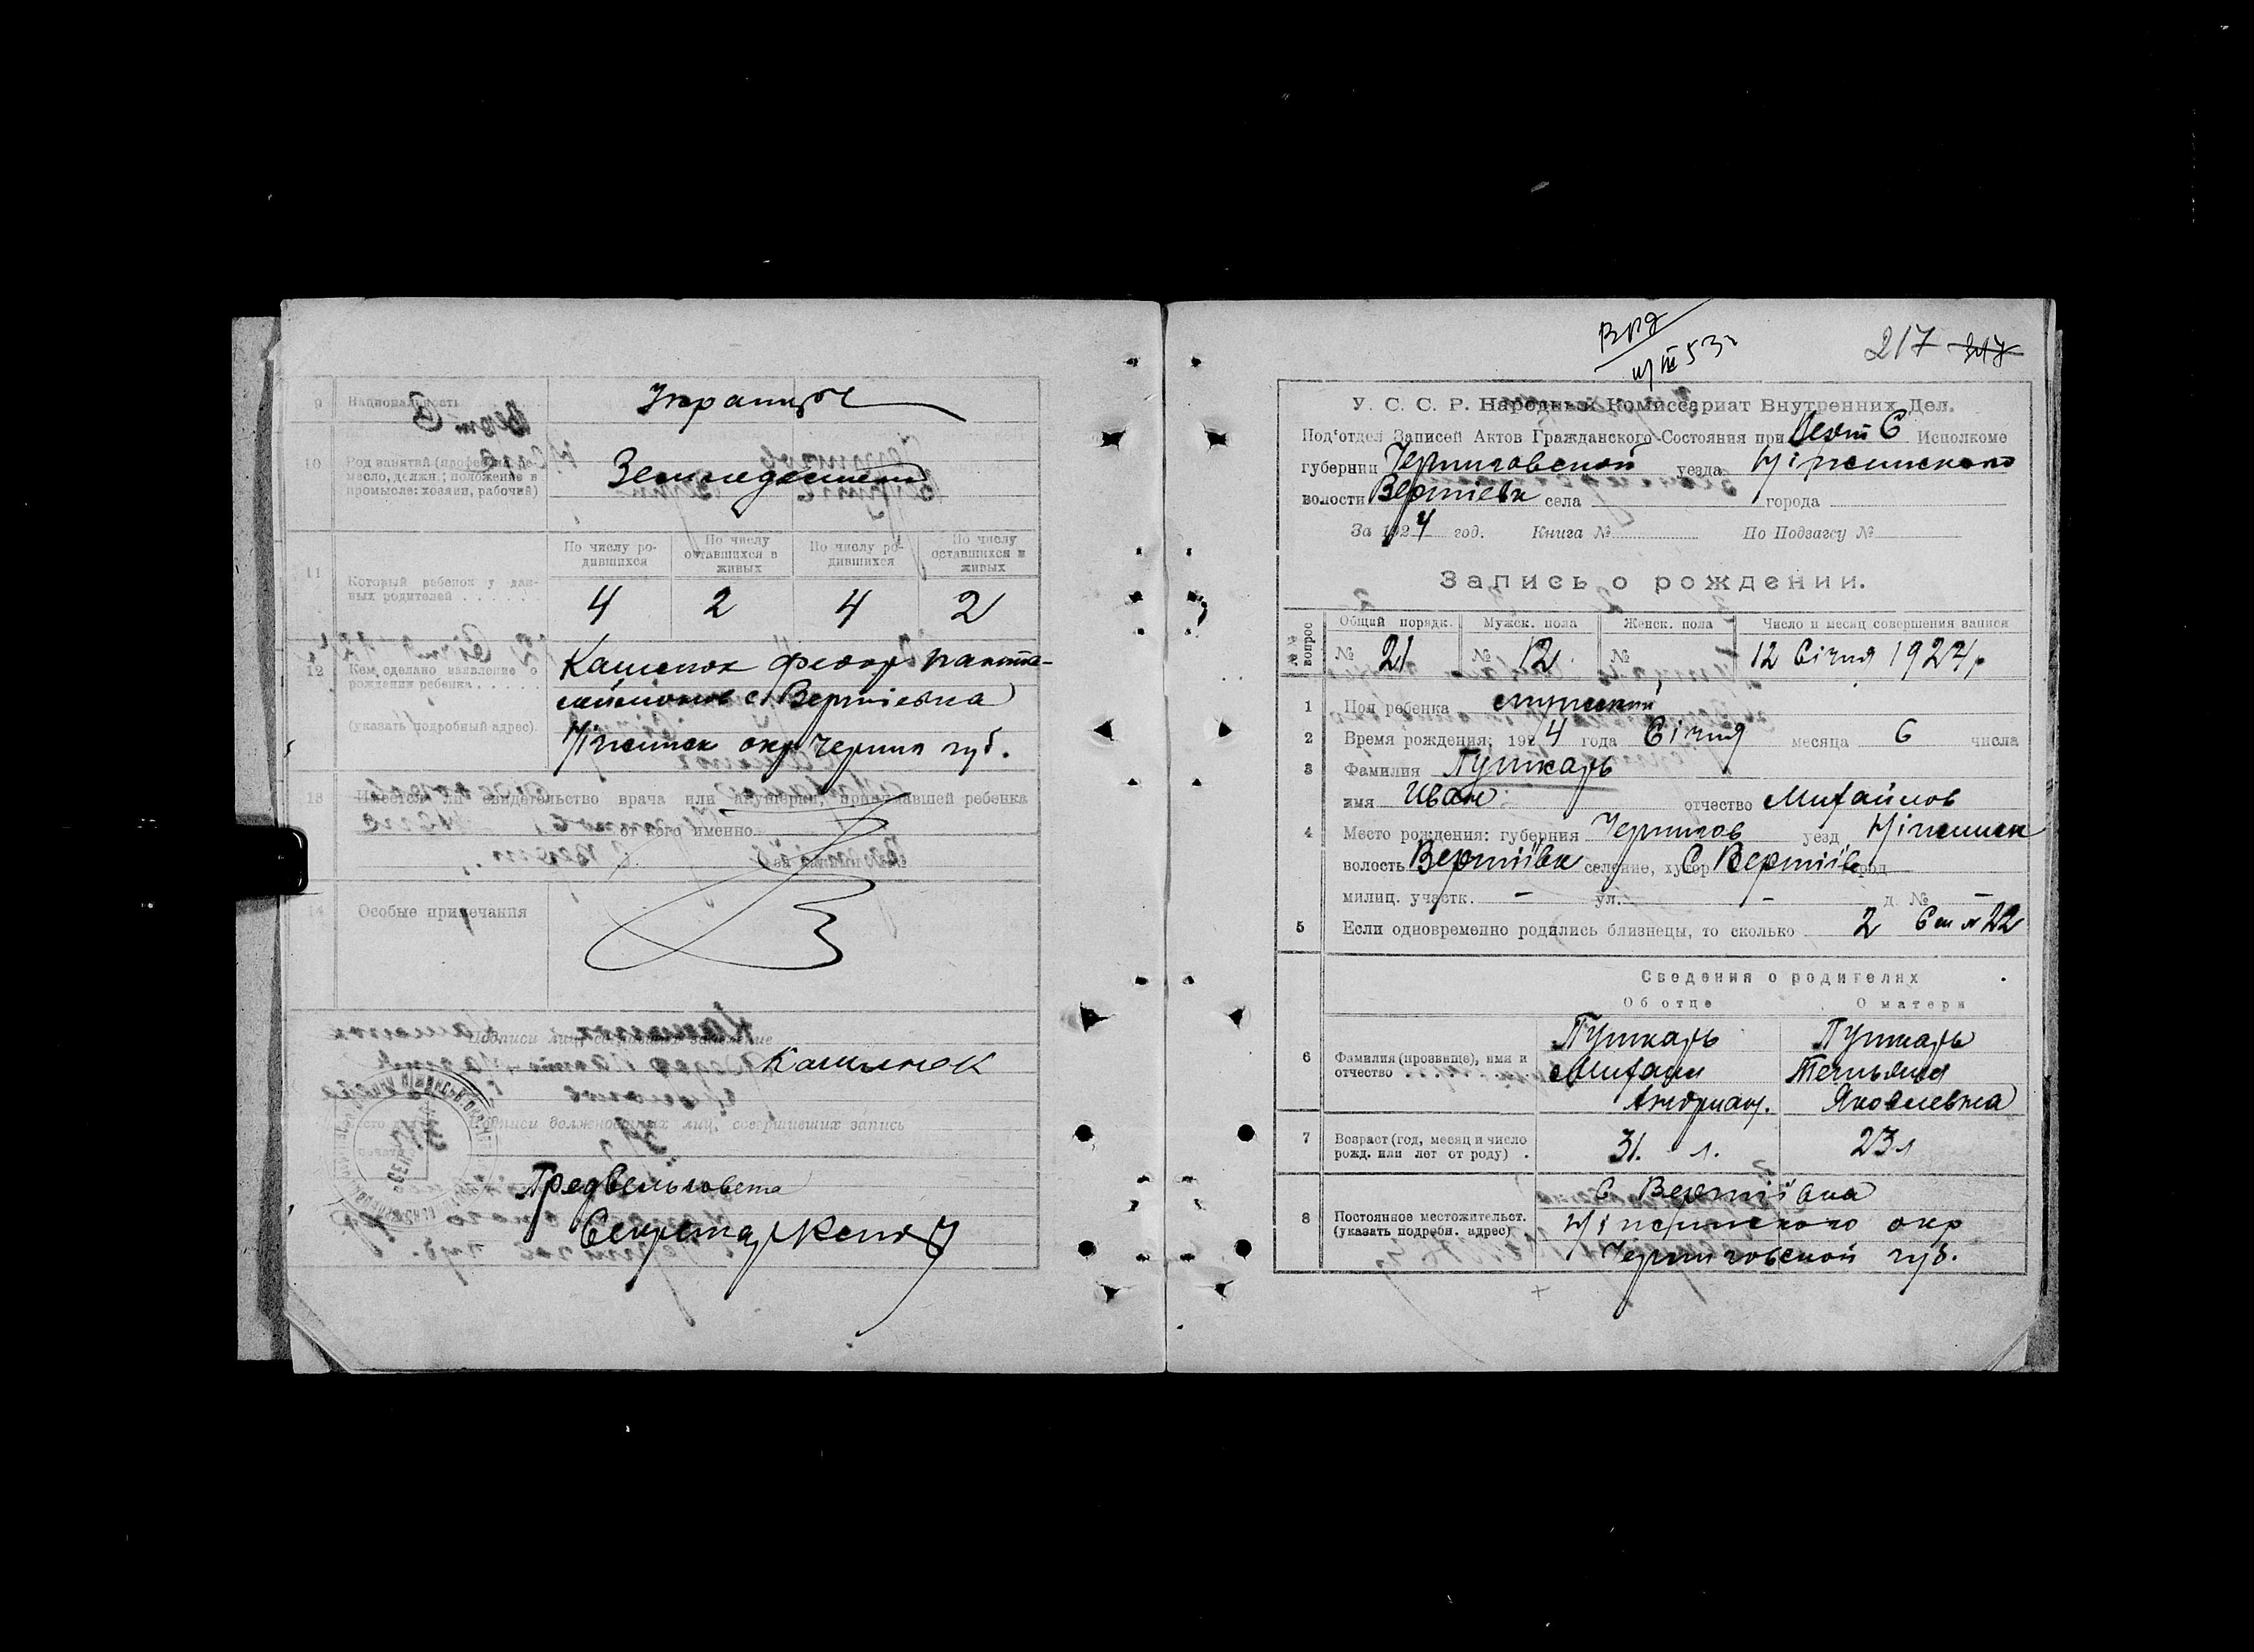 9 Национальность Украинцы
10 Род занятий (профессия, ре-
месло, должн.; положение в
промысле: хозяин, рабочий) Земледелием
По числу ро-
дившихся По числу
оставшихся в
живых По числу ро-
дившихся По числу
оставшихся в
живых
11 Который ребенок у дан-
ных родителей 4 2 4 2
12 Кем сделано заявление о
рождении ребенка Кашенок Федор Панте-
леймонов с Вертіевка
(указать подробный адрес) Ніженск окр Черниг губ.
13 Имеется ли свидетельство врача или акушерки, принимавшей ребенка
от кого именно
14 Особые примечания
Подписи лиц, сделавших заявление
Кашенок
Подписи должностных лиц, совершивших запись
Предсельсовета
Секретар
217 217
У. С. С. Р. Народный Комиссариат Внутренних Дел.
Под'отдел Записей Актов Гражданского Состояния при Исполкоме
губернии Черниговской уезда Ніженского
волости Вертіевк села города
За 1924 год. Книга № По Подзагсу №
Запись о рождении.
№№ вопрос Общий порядк. Мужск. пола Женск. пола Число и месяц совершения записи
№ 21 № 12 № 12 Січня 1924 р.
1 Пол ребенка мужский
2 Время рождения: 1924 года Січня месяца 6 числа
3 Фамилия Пушкарь
имя Иван отчество Михайлов
4 Место рождения: губерния Чернигов уезд Ніженск
волость Вертіївк селение, хутор С Вертіїв город
милиц. участк. - ул. - д № -
5 Если одновременно родились близнецы, то сколько 2 См № 22
Сведения о родителях
Об отце О матери
6 Фамилия (прозвище), имя и
отчество Пушкарь Пушкарь
Михаил Татьяна
Андриан. Яковлевна
7 Возраст (год, месяц и число
рожд. или лет от роду) 31. л. 23 л
8 Постоянное местожительст.
(указать подробн. адрес) С Вертіївка
Ніженского окр
Черниговской губ.